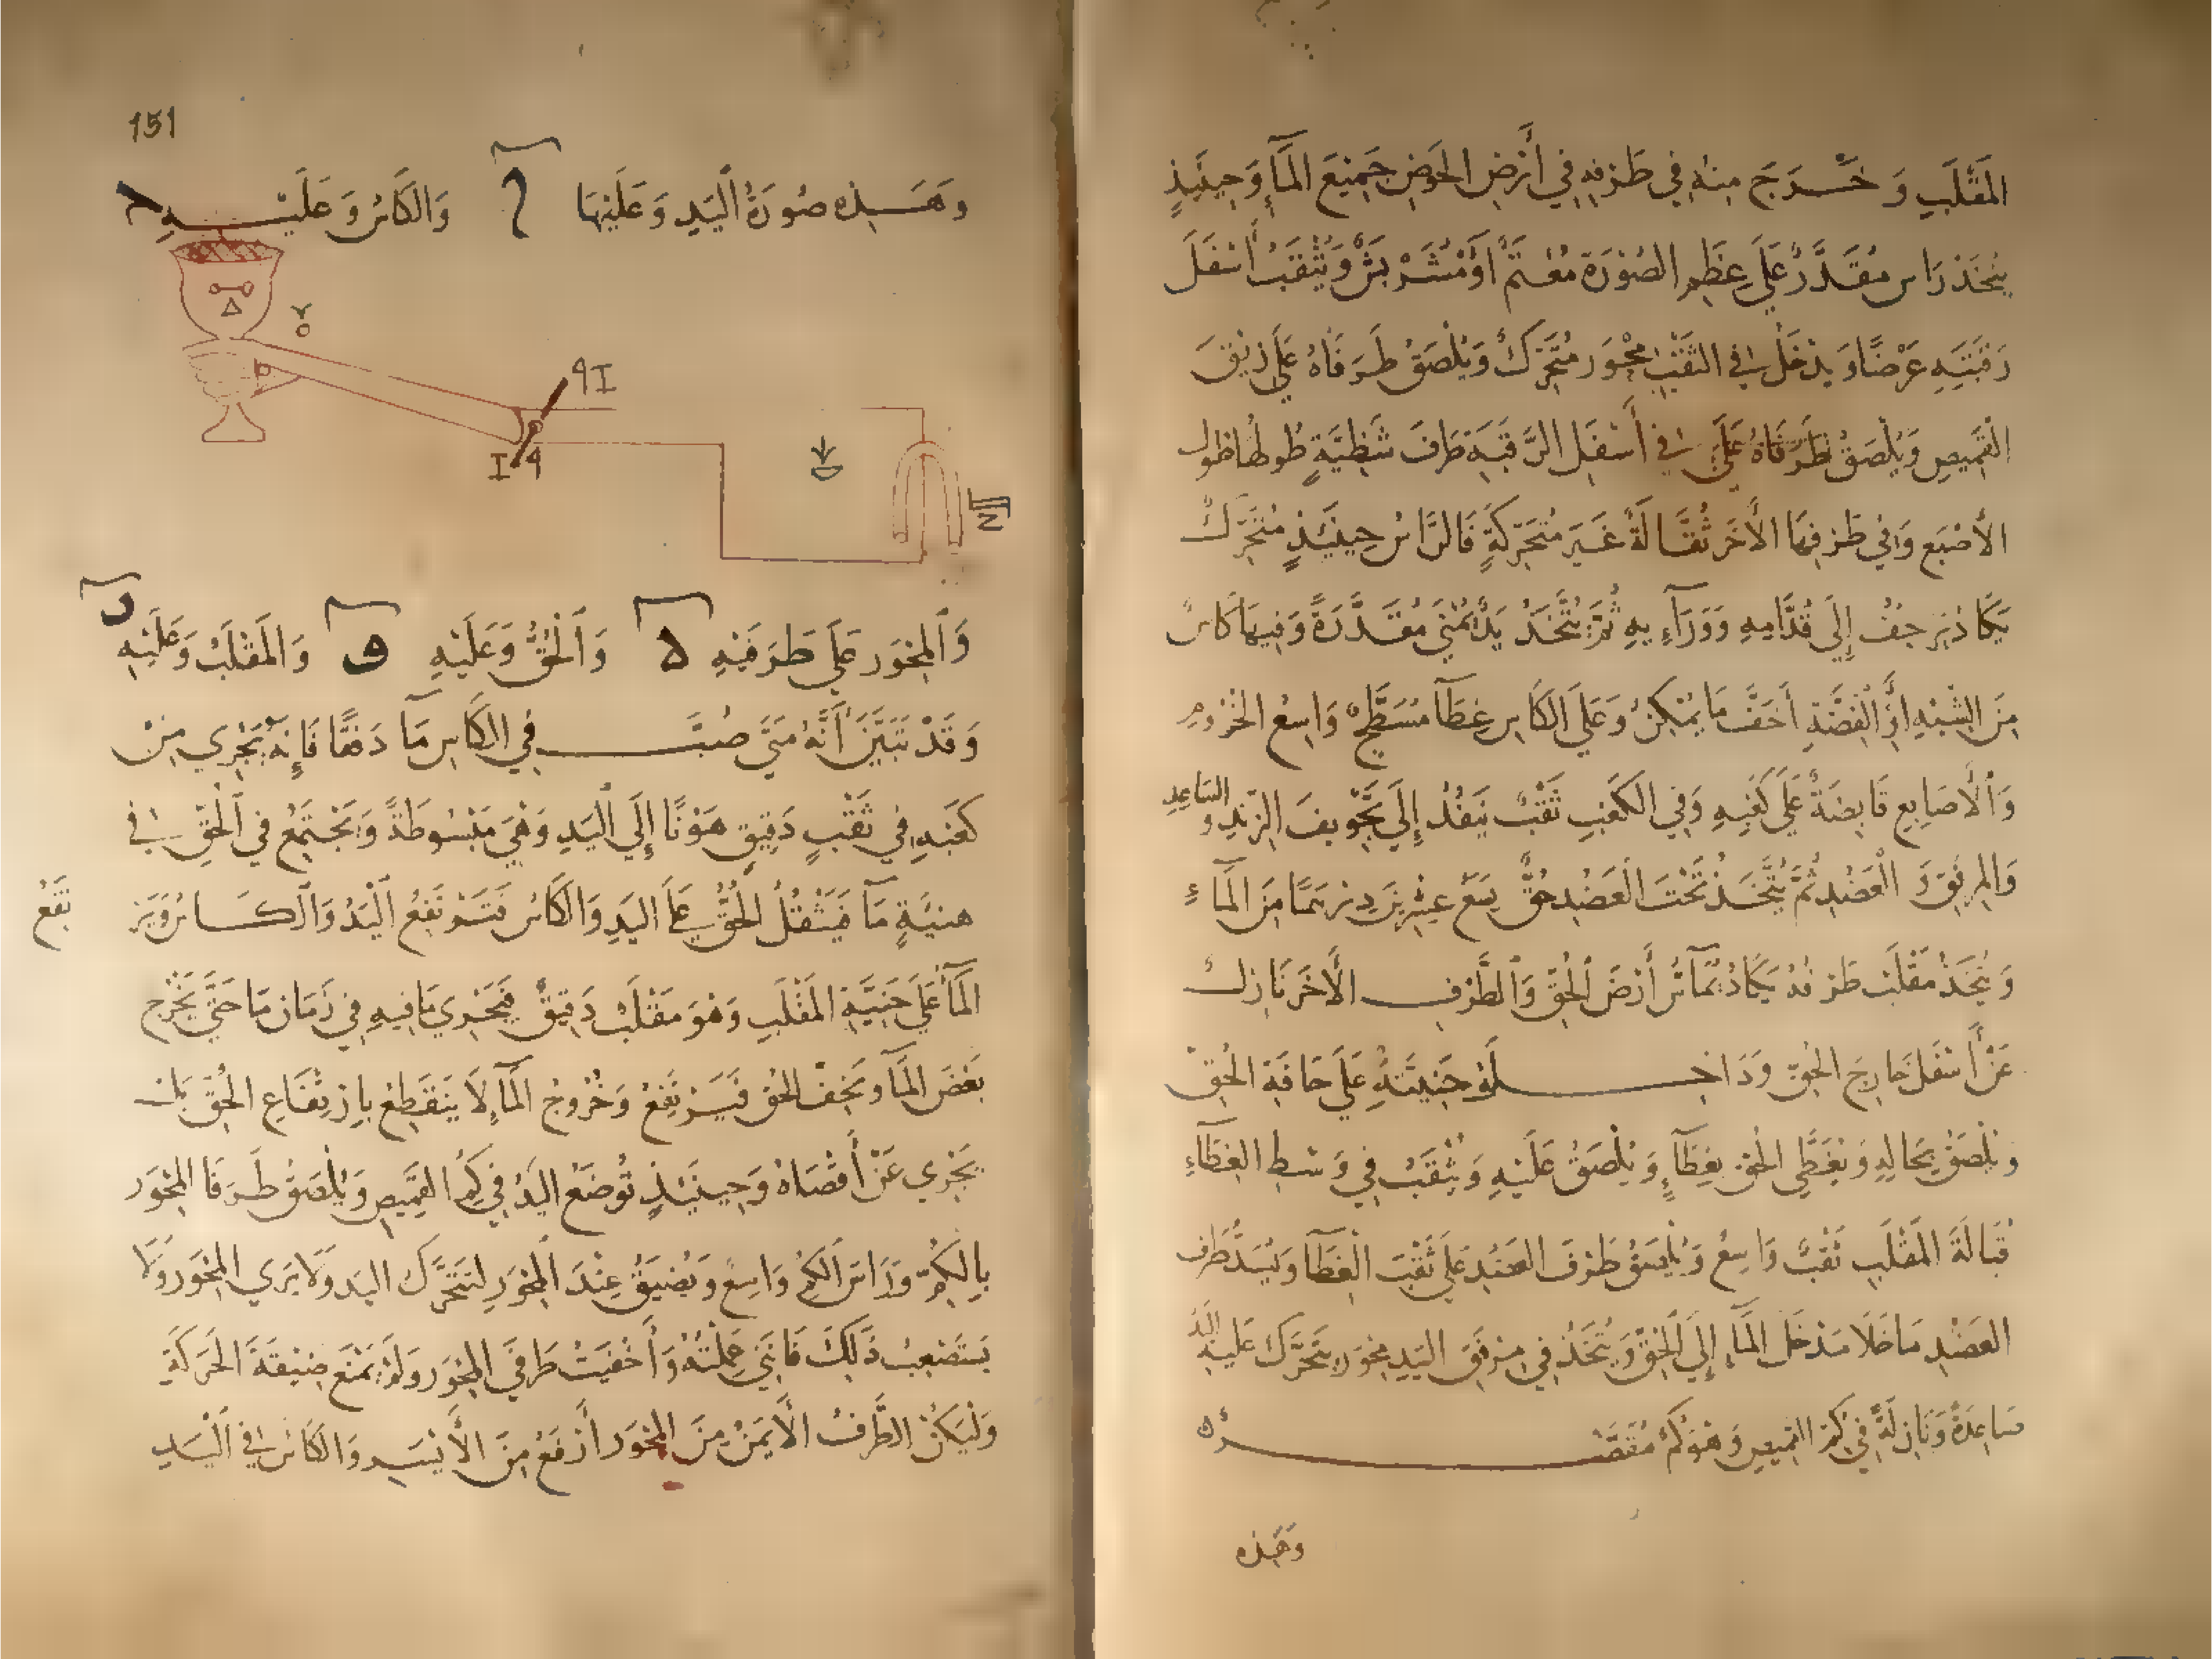 المَقْلَبِ وَخَرَجَ مِنهُ فِي طَرَفِهِ فِي أَرْضِ الحَوضِ جَمِيْعَ المَآءِ وَحِينَئِذٍ
يُتخَذُ رَاس مُقَدَّرٌ عَلَي عِظَمِ الصُوْرَة مُعْتَمٌّ أَوْ مُشَرْبَشٌ وَيُثْقَبُ أَسْفَلَ
رَقَبَتِهِ عَرْضًا وَيدْخَل في الثَقْبِ مِحْوَر مُتَحَرِكٌ وَيُلْصَقُ طَرَفَاهُ عَلَي زِيْقَ
القَمِيصِ وَيُلْصَقُ طَرَفَاهُ عَلَى في أَسْفَلِ الرَّقَبَةِ طَرَفَ شَظِيَّةٍ طُولُهَا طُول
الأصْبَع وَفِي طَرَفِهَا الأَخَر ثُقَّالَةٌ غَيرَ مُتَحَرِّكَةٍ فَالرَّاسُ حِينَئِذٍ مُتَحَرِّكٌ
يَكَادُ يَرجفُ إِلَى قُدَّامِهِ وَوَرَآءِ يهِ ثُمَّ يُتَّخَذُ يَدٌ يُمْنَي مُقَدَّرَةً وَفِيهَا كَاسٌ
مِنَ الشِبْهِ أَوِ الفِضَّةِ أَخَفَّ مَا يُمْكِنُ وَعَلَى الكَاسِ غِطَآ مُسَطَّحٌ وَاسِعُ الخُرُومِ
وَالأَصَابِعِ قَابِضَةٌ عَلَي كَعْبِهِ وَفِي الكَعْبِ ثَقْبٌ يَنفُذُ إِلَي تَجْوِيفَ الزَندِ وَ السَاعِدِ
وَالمِرفَقِ وَ الْعَضُدِ ثُمَّ يُتَّخَذُ تَحْتَ العَضُدِ حُقٌّ يسَعُ عِشْرِينَ دِرْهَمًا مِنَ المَآءِ
وَيُتخَذُ مَقْلَبٌ طَرَفُهُ يَكَادُ يُمَآسُّ أَرْضَ الحُقِّ وَالطَّرَف الأَخَر نَازِلٌ
عَنْ أَسْفَلَ خَارِجَ الحُقِّ وَدَاخِلَهُ حَنِيَّتُهُ عَلَي حَافَةِ الحُقِّ
وَيُلْصَقُ بِحَالِهِ وَيُغَطَّي الحُقّ بِغِطَآءٍ وَيُلْصَقُ عَلَيْهِ وَيُثْقَبُ فِي وَسَطِ الغِطَآءِ
قُبَالَةَ المَقْلَبِ ثَقْبٌ وَاسِعٌ وَيُلْصَقُ طَرَفَ العَضُدِ عَلَي ثَقْبَ الْغِطَآ وَيُسَدُّ طَرَف
العَضُدِ مَا خَلَا مَدْخَل المَآءِ إِلَي الحُقِّ وَيُتَّخَذُ فِي مِرْفَقِ اليَدِ مِحْوَر يَتَحَرَّكَ عَلَيْهِ اليَدُ
صَاعِدَةً وَنَازِلَةً فِي كُمِّ القَمِيصِ وَهُوَ كُمٌّ مُقَصَّرٌ
وَهَذِه
151
وَهَذِه صُورَةُ اليَدِ وَعَلَيْهَا وَالكَاسُ وَعَلَيْهِ
وَالمِحْوَر عَلَي طَرَفَيْهِ ه وَالحُقُّ وَعَلَيْهِ و وَالمَقْلَبُ وَعَلَيْهِ ر
وَقَدْ تَبَيَّنَ أَنَّهُ مَتَي صُبَّ فِي الكَاسِ مَآ دَفعًا فَإِنهُ يَجْرِي مِنْ
كَعْبِهِ فِي ثَقْبٍ دَقِيقٍ هَوْنًا إِلَي اليَدِ وَهِيَ مَبْسُوطَةٌ وَيَجْتَمِعُ فِي الحُقِّ في
هنيَّةٍ مَآ فَيَثْقُلُ الحُقُّ عَلَى اليَدِ وَالكَاسُ فَتَرْتَفِعُ اليَدُ وَالكَاسُ وَيَرْ تَفِعُ
المَآءُ عَلَي حَنِيَّةِ المَقْلَبِ وَهُوَ مَقْلَبٌ دَقِيقٌ فَيَجْرِي مَا فِيهِ فِي زَمَان مَا حَتَّي يَخْرُج
بَعْضَ المَآءِ وَيَخِفُّ الحُقّ فَيَرْتَفِعُ وَخُرُوجُ المَآءِ لَا يَنْقَطِعُ بِارْتِفَاعِ الحُقّ بَل
يَجْرِي عَنْ أَقْصَاهُ وَحِينَئِذٍ تُوضَعُ اليَدُ فِي كُمِّ القَمِيصِ وَيُلْصَقُ طَرَفَا المِحْوَر
بِالكُمِّ وَرَاسَ الكُمِّ وَاسِعٌ وَيُضَيَّقُ عِنْدَ المِحْوَرِ لِتَتَحَرَّكَ اليَد وَلَا يُرَي المِحْوَر وَلَا
يَسْتَصْعِبُ ذَلِكَ فَإِنَّنِي عَمِلْتُهُ وَأَخْفَيْتُ طَرَفَي المِحْوَر وَلَمْ يَمْنَع ضِيْقَةَ الحَرَكَةِ
وَلْيَكُنْ الطَّرَفُ الأَيْمَنُ مِنَ المِحْوَر أَرْفَعُ مِنَ الأَيْسَرِ وَالكَاس في اليَدِ